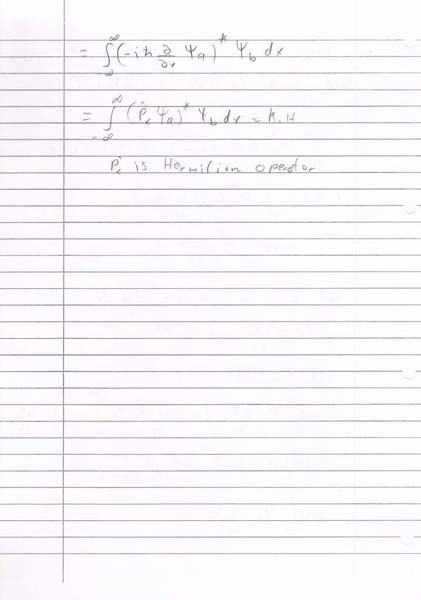 = ∫_{-∞}^{∞} (-iħ ∂/∂x Ψa)* Ψb dx
= ∫_{-∞}^{∞} (P̂x Ψa)* Ψb dx = R.H
P̂x is Hermition operator